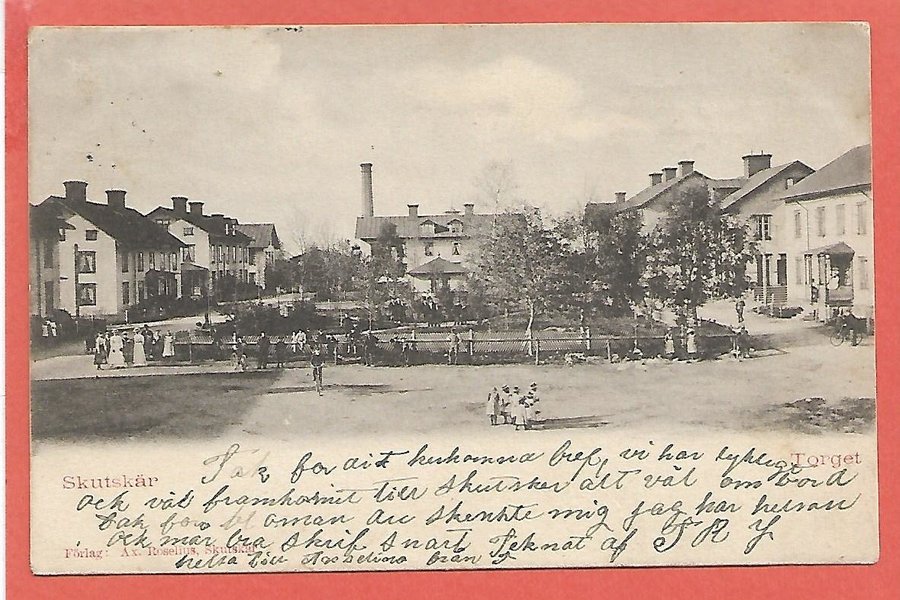 Skutskär
Torget
Tack för ditt herkomna bref, vi har lykligt
och väl framkomit till skutsker alt väl ombord
Tack för bloman du skenkte mig jag har helsan
och mår bra skrif snart Teknat af
Förlag: Ax. Roselius, Skutskär
helsa till från